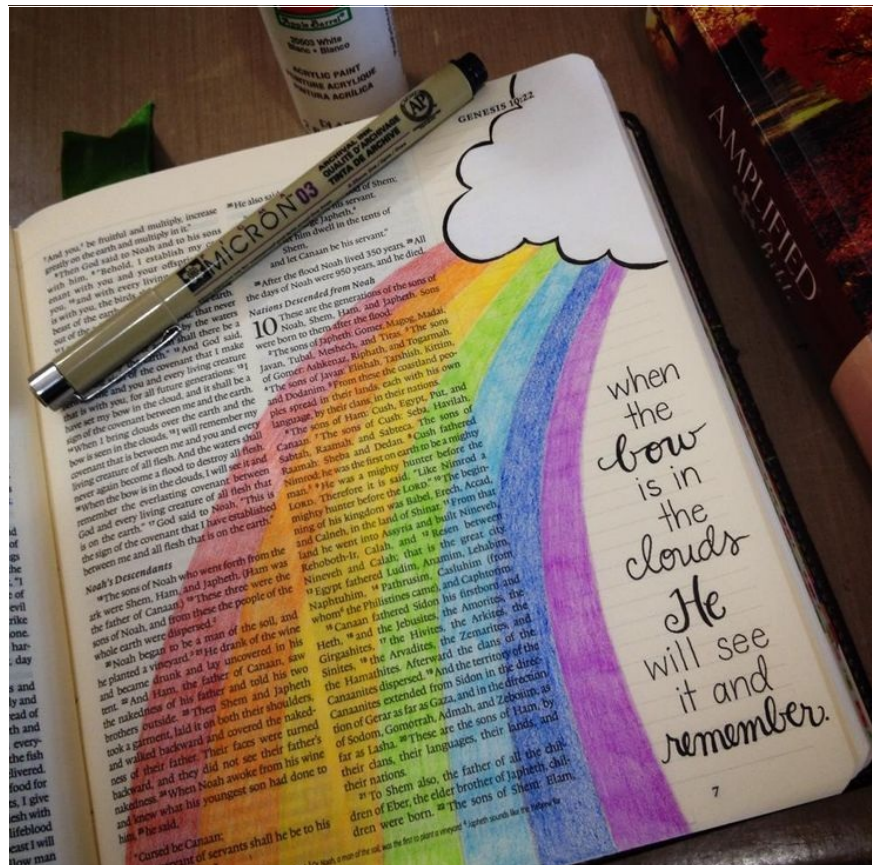 20503 White
Blanc • Blanco
ACRYLIC PAINT
PEINTURE ACRYLIQUE
PINTURA ACRÍLICA
MICRON 03
ARCHIVAL INK
QUALITÉ D'ARCHIVAGE
TINTA DE ARCHIVE
AP
AMPLIFIED
GENESIS 10:22
the
evil
one.
har-
day
s and
ly and
ead of
th and
every-
the fish
livered.
food for
s, I give
esh with
lifeblood
east I will
llow man
"And you, be fruitful and multiply, increase
greatly on the earth and multiply in it."
⁸Then God said to Noah and to his sons
with him, ⁹"Behold, I establish my
enant with you and your offspring
you, ¹⁰and with every living
is with you, the birds
beast of the earth
out of the
that never
by the waters
shall there be a
earth." ¹²And God said,
of the covenant that I make
me and you and every living creature
that is with you, for all future generations: ¹³I
have set my bow in the cloud, and it shall be a
sign of the covenant between me and the earth.
¹⁴When I bring clouds over the earth and the
bow is seen in the clouds, ¹⁵I will remember my
covenant that is between me and you and every
living creature of all flesh. And the waters shall
never again become a flood to destroy all flesh.
¹⁶When the bow is in the clouds, I will see it and
remember the everlasting covenant between
God and every living creature of all flesh that
is on the earth." ¹⁷God said to Noah, "This is
the sign of the covenant that I have established
between me and all flesh that is on the earth."
Noah's Descendants
¹⁸The sons of Noah who went forth from the
ark were Shem, Ham, and Japheth. (Ham was
the father of Canaan.) ¹⁹These three were the
sons of Noah, and from these the people of the
whole earth were dispersed.
²⁰Noah began to be a man of the soil, and
he planted a vineyard. ²¹He drank of the wine
and became drunk and lay uncovered in his
tent. ²²And Ham, the father of Canaan, saw
the nakedness of his father and told his two
brothers outside. ²³Then Shem and Japheth
took a garment, laid it on both their shoulders,
and walked backward and covered the naked-
ness of their father. Their faces were turned
backward, and they did not see their father's
nakedness. ²⁴When Noah awoke from his wine
and knew what his youngest son had done to
him, ²⁵he said,
"Cursed be Canaan;
servant of servants shall he be to his
²⁶He also said
of Shem;
his servant.
Japheth,
him dwell in the tents of
Shem,
and let Canaan be his servant."
²⁸After the flood Noah lived 350 years. ²⁹All
the days of Noah were 950 years, and he died.
Nations Descended from Noah
10 These are the generations of the sons of
Noah, Shem, Ham, and Japheth. Sons
were born to them after the flood.
²The sons of Japheth: Gomer, Magog, Madai,
Javan, Tubal, Meshech, and Tiras. ³The sons
of Gomer: Ashkenaz, Riphath, and Togarmah.
⁴The sons of Javan: Elishah, Tarshish, Kittim,
and Dodanim. ⁵From these the coastland peo-
ples spread in their lands, each with his own
language, by their clans, in their nations.
⁶The sons of Ham: Cush, Egypt, Put, and
Canaan. ⁷The sons of Cush: Seba, Havilah,
Sabtah, Raamah, and Sabteca. The sons of
Raamah: Sheba and Dedan. ⁸Cush fathered
Nimrod; he was the first on earth to be a mighty
man. ⁹He was a mighty hunter before the
LORD. Therefore it is said, "Like Nimrod a
mighty hunter before the LORD." ¹⁰The begin-
ning of his kingdom was Babel, Erech, Accad,
and Calneh, in the land of Shinar. ¹¹From that
land he went into Assyria and built Nineveh,
Rehoboth-Ir, Calah, and ¹²Resen between
Nineveh and Calah; that is the great city.
¹³Egypt fathered Ludim, Anamim, Lehabim,
Naphtuhim, ¹⁴Pathrusim, Casluhim (from
whom the Philistines came), and Caphtorim.
¹⁵Canaan fathered Sidon his firstborn and
Heth, ¹⁶and the Jebusites, the Amorites, the
Girgashites, ¹⁷the Hivites, the Arkites, the
Sinites, ¹⁸the Arvadites, the Zemarites, and
the Hamathites. Afterward the clans of the
Canaanites dispersed. ¹⁹And the territory of the
Canaanites extended from Sidon in the direc-
tion of Gerar as far as Gaza, and in the direction
of Sodom, Gomorrah, Admah, and Zeboiim, as
far as Lasha. ²⁰These are the sons of Ham, by
their clans, their languages, their lands, and
their nations.
²¹To Shem also, the father of all the chil-
dren of Eber, the elder brother of Japheth, chil-
dren were born. ²²The sons of Shem: Elam,
Noah, a man of the soil, was the first to plant a vineyard Japheth sounds like the Hebrew for
when
the
bow
is in
the
clouds
He
will see
it and
remember.
7